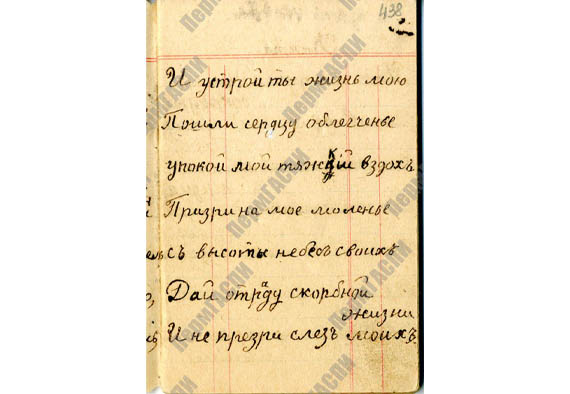 438
И устрой ты жизнь мою
Пошли сердцу облегченье
упокой мой тяжкій вздохъ
Призри на мое моленье
съ высоты небесъ своихъ
Дай отраду скорбной
жизни
И не презри слезъ моихъ